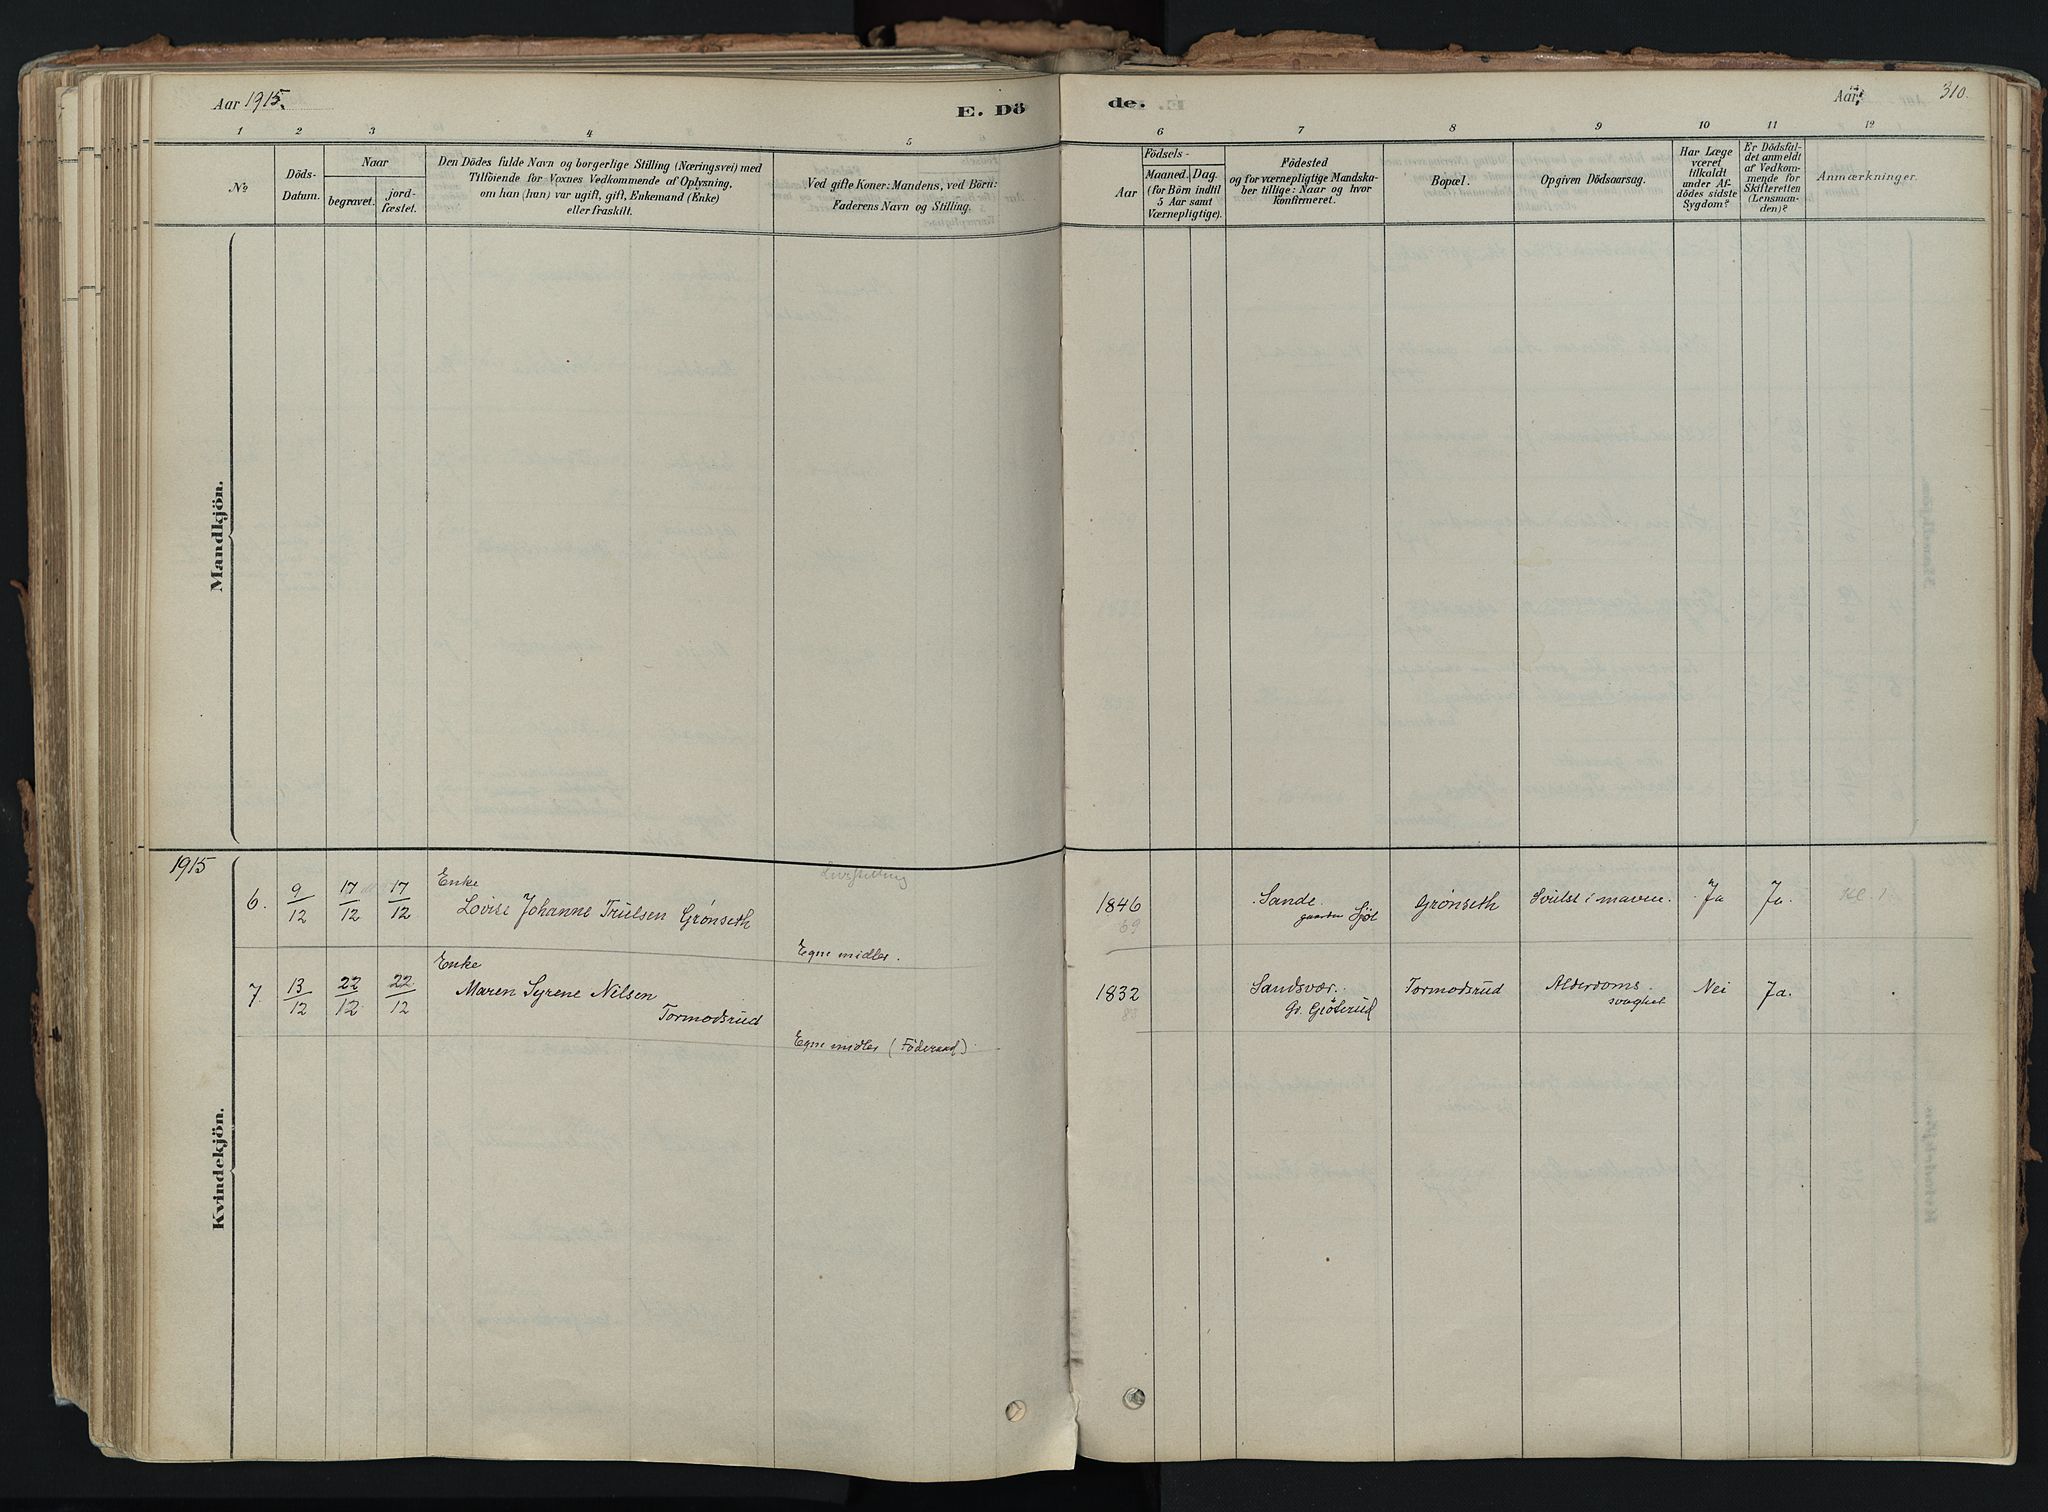 Aar 1915.
E. Dö
1
2
3
4
5
No
Döds-
Datum.
Naar
begravet.
jord-
fæstet.
Den Dödes fulde Navn og borgerlige Stilling (Næringsvei) med
Tilföiende for Voxnes Vedkommende af Oplysning,
om han (hun) var ugift, gift, Enkemand (Enke)
eller fraskilt.
Ved gifte Koner: Mandens, ved Börn:
Faderens Navn og Stilling.
Mandkjön.
1915
6.
9/12
17/12
17/12
Enke
Lovise Johanne Trulsen Grönseth
Livsstilling
Egne midler.
7.
13/12
22/12
22/12
Enke
Maren Syrene Nilsen
Tormodsrud
Egne midler (Föderaad).
Kvindekjön.
de.
Aar
310.
6
7
8
9
10
11
12
Aar
Födsels-
Maaned.
Dag.
(for Börn indtil
5 Aar samt
Værnepligtige).
Födested
og for værnepligtige Mandska-
ber tillige: Naar og hvor
konfirmeret.
Bopæl.
Opgiven Dödsaarsag.
Har Læge
været
tilkaldt
under Af-
dödes sidste
Sygdom?
Er Dödsfal-
det anmeldt
af Vedkom-
mende for
Skifteretten
(Lensman-
den)?
Anmærkninger.
1846
69
Sande.
gaarden
Grönseth
Svulst i maven.
Ja
Ja.
1832
83
Sandsvær.
Tormodsrud
Alderdoms.
svaghet
Nei
Ja.